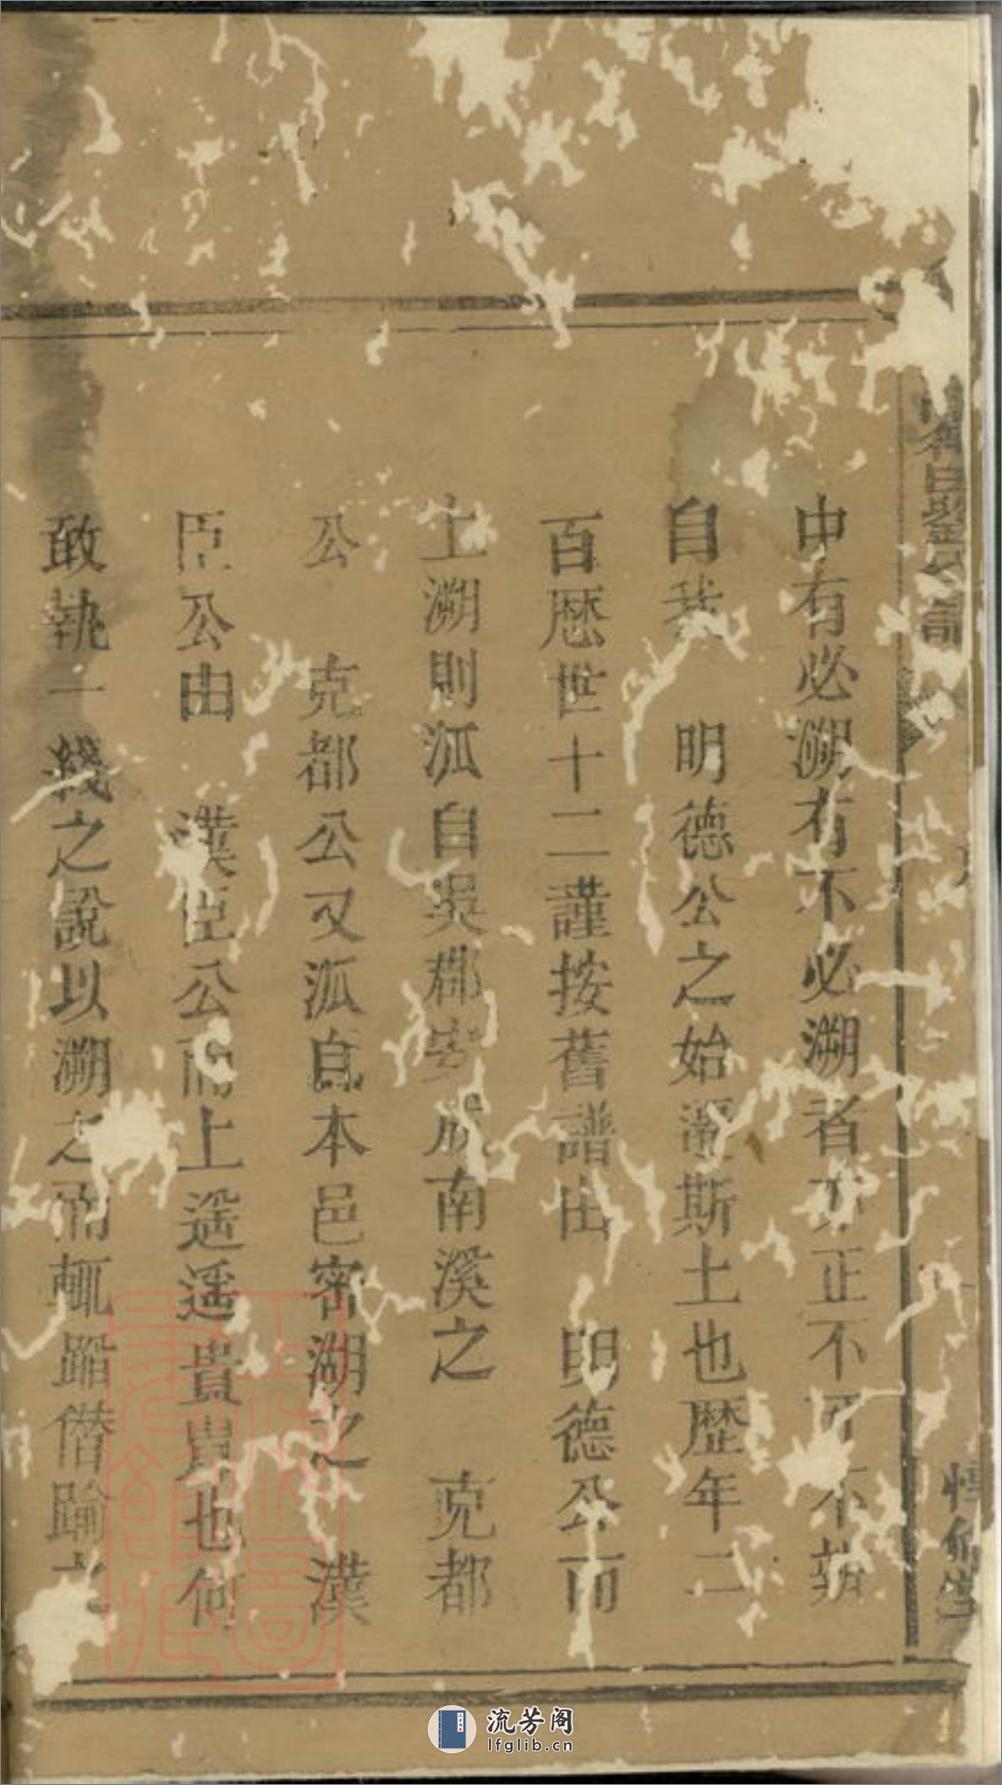 中有必溯有不必溯者亦正不可不辨
自我 明德公之始遷斯土也歷年二
百歷世十二謹按舊譜由 明德公而
上溯則派自吳郡安成南溪之 克都
公 克都公又派自本邑密湖之 漢
臣公由 漢臣公而上遥遥貴胄也何
敢執一綫之說以溯之而輒蹈僭踰之
流芳阁
lfglib.cn